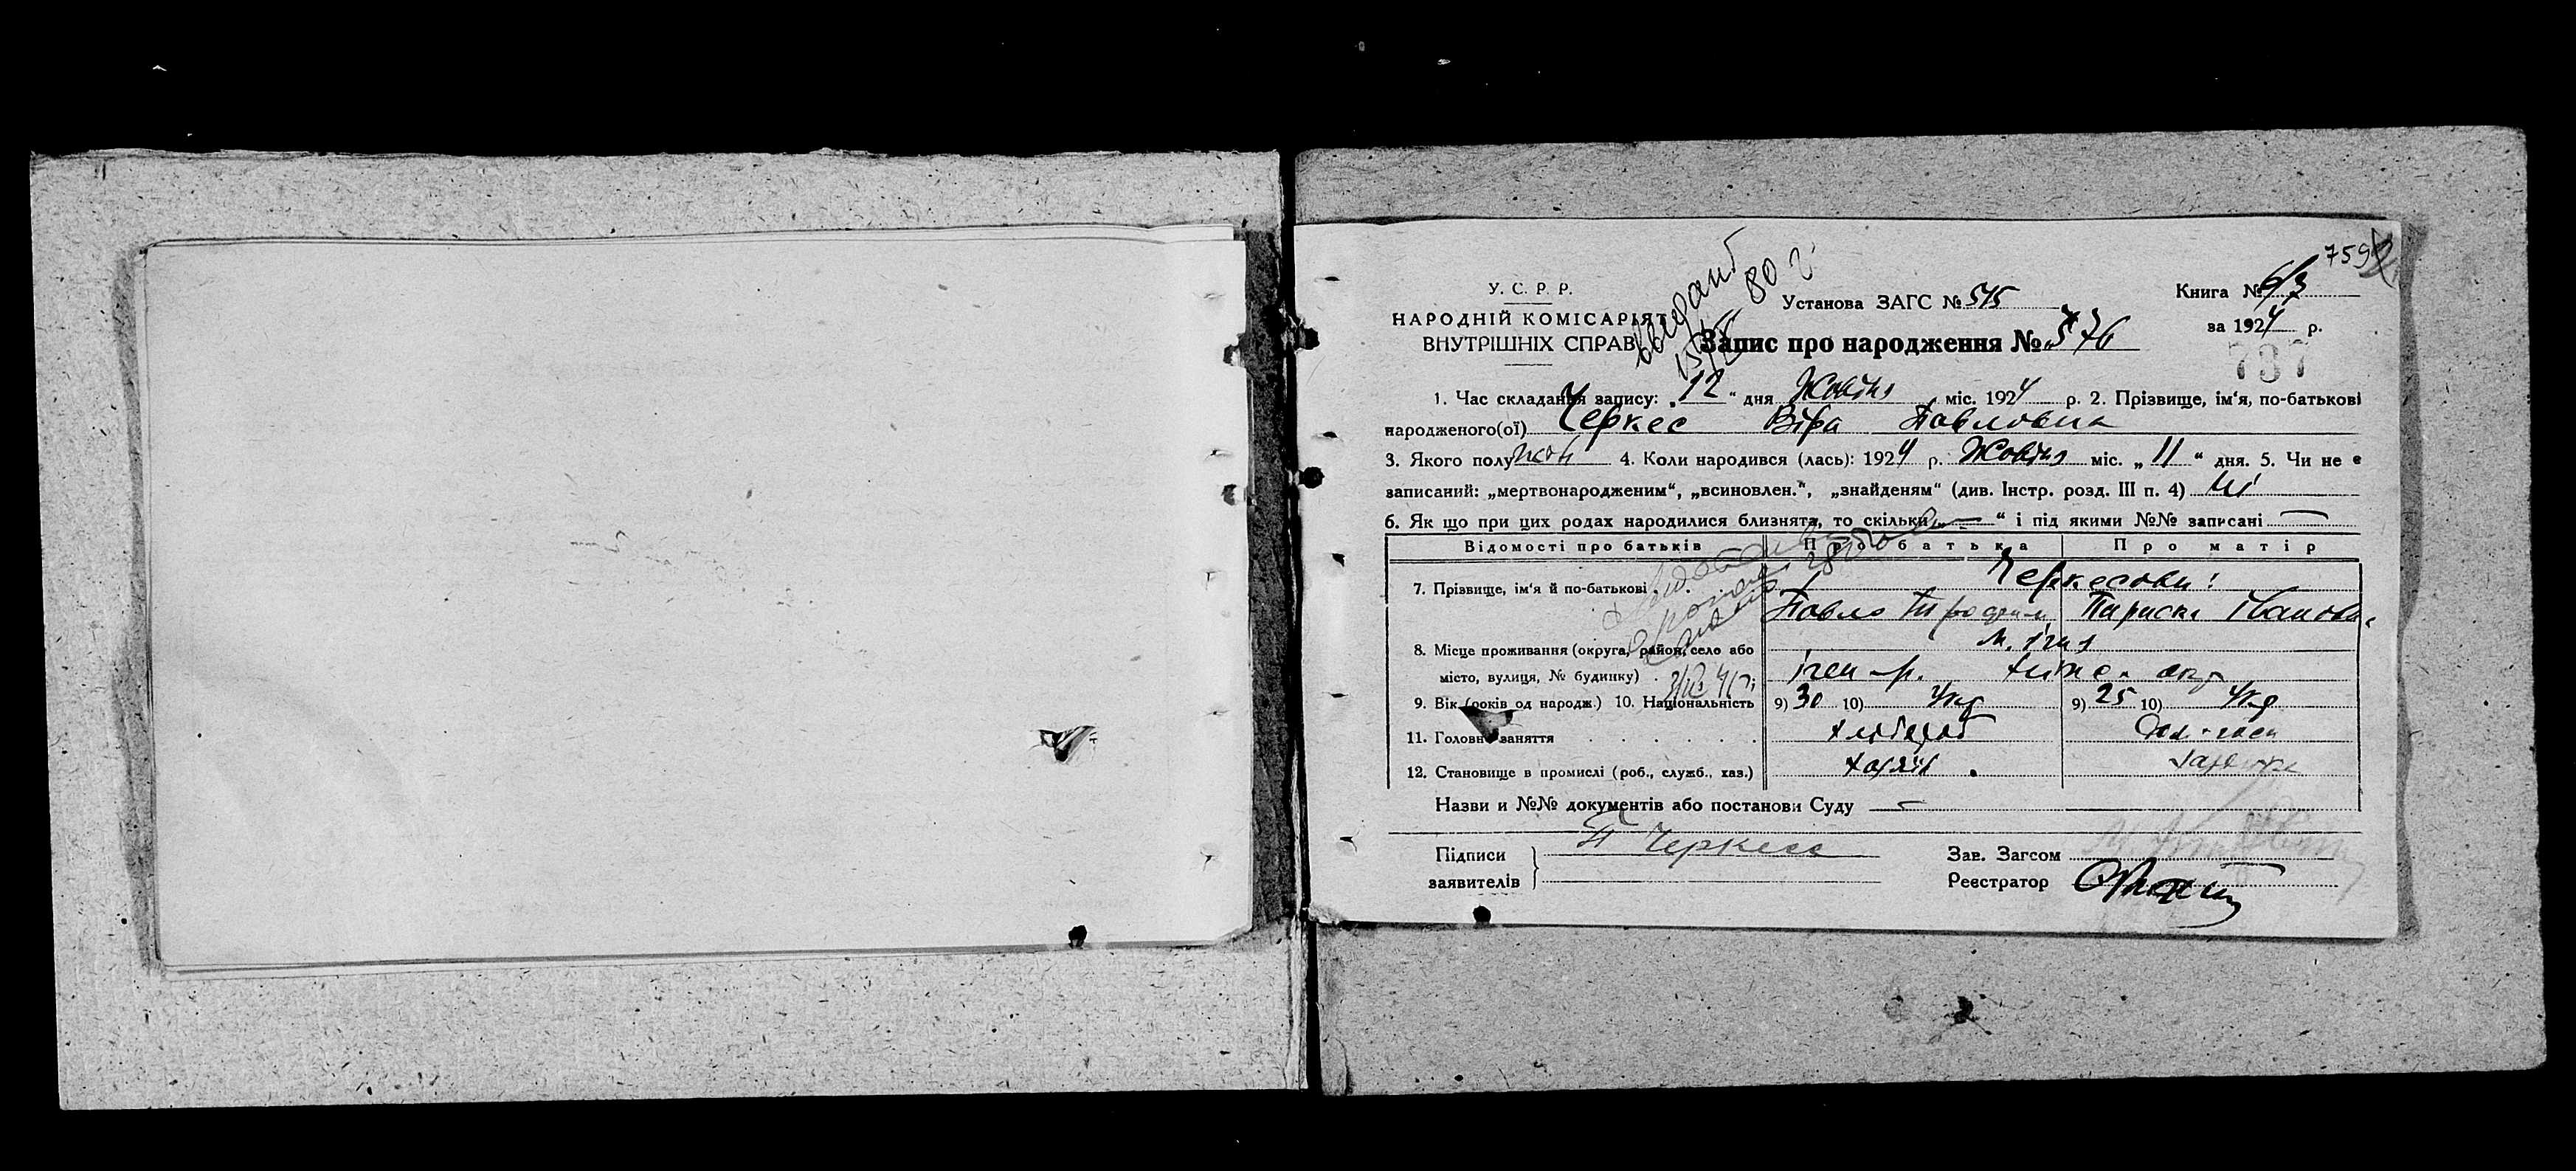 759
У. С. Р. Р.
НАРОДНІЙ КОМІСАРІЯТ
ВНУТРІШНІХ СПРАВ
80 г.
Установа ЗАГС № 545
Книга № 6/3
за 1924 р.
Запис про народження № 576
737
1. Час складання запису: „12“ дня Жовтня міс. 1924 р. 2. Прізвище, ім‘я, по-батькові
народженого(ої) Черкес Віра Павловна
3. Якого полу жін 4. Коли народився (лась): 1924 р. Жовтня міс. „11“ дня. 5. Чи не є
записаний: „мертвонародженим“, „всиновлен.“, „знайденям“ (див. Інстр. розд. III п. 4) Ні
6. Як що при цих родах народилися близнята, то скільки „—“ і під якими №№ записані —
Відомості про батьків Про батька Про матір
7. Прізвище, ім‘я й по-батькові Черкесови:
Павло Париска Іванова
8. Місце проживання (округа, район, село або м. Ічня
місто, вулиця, № будинку) Ічен р. Ніжен. окр
9. Вік (років од народж.) 10. Національність 9) 30 10) Укр 9) 25 10) Укр
11. Головне заняття хлібороб Дом-госп
12. Становище в промислі (роб., служб., хаз.) хазяїн
Назви и №№ документів або постанови Суду —
Підписи П Черкесс Зав. Загсом
заявителів Реєстратор